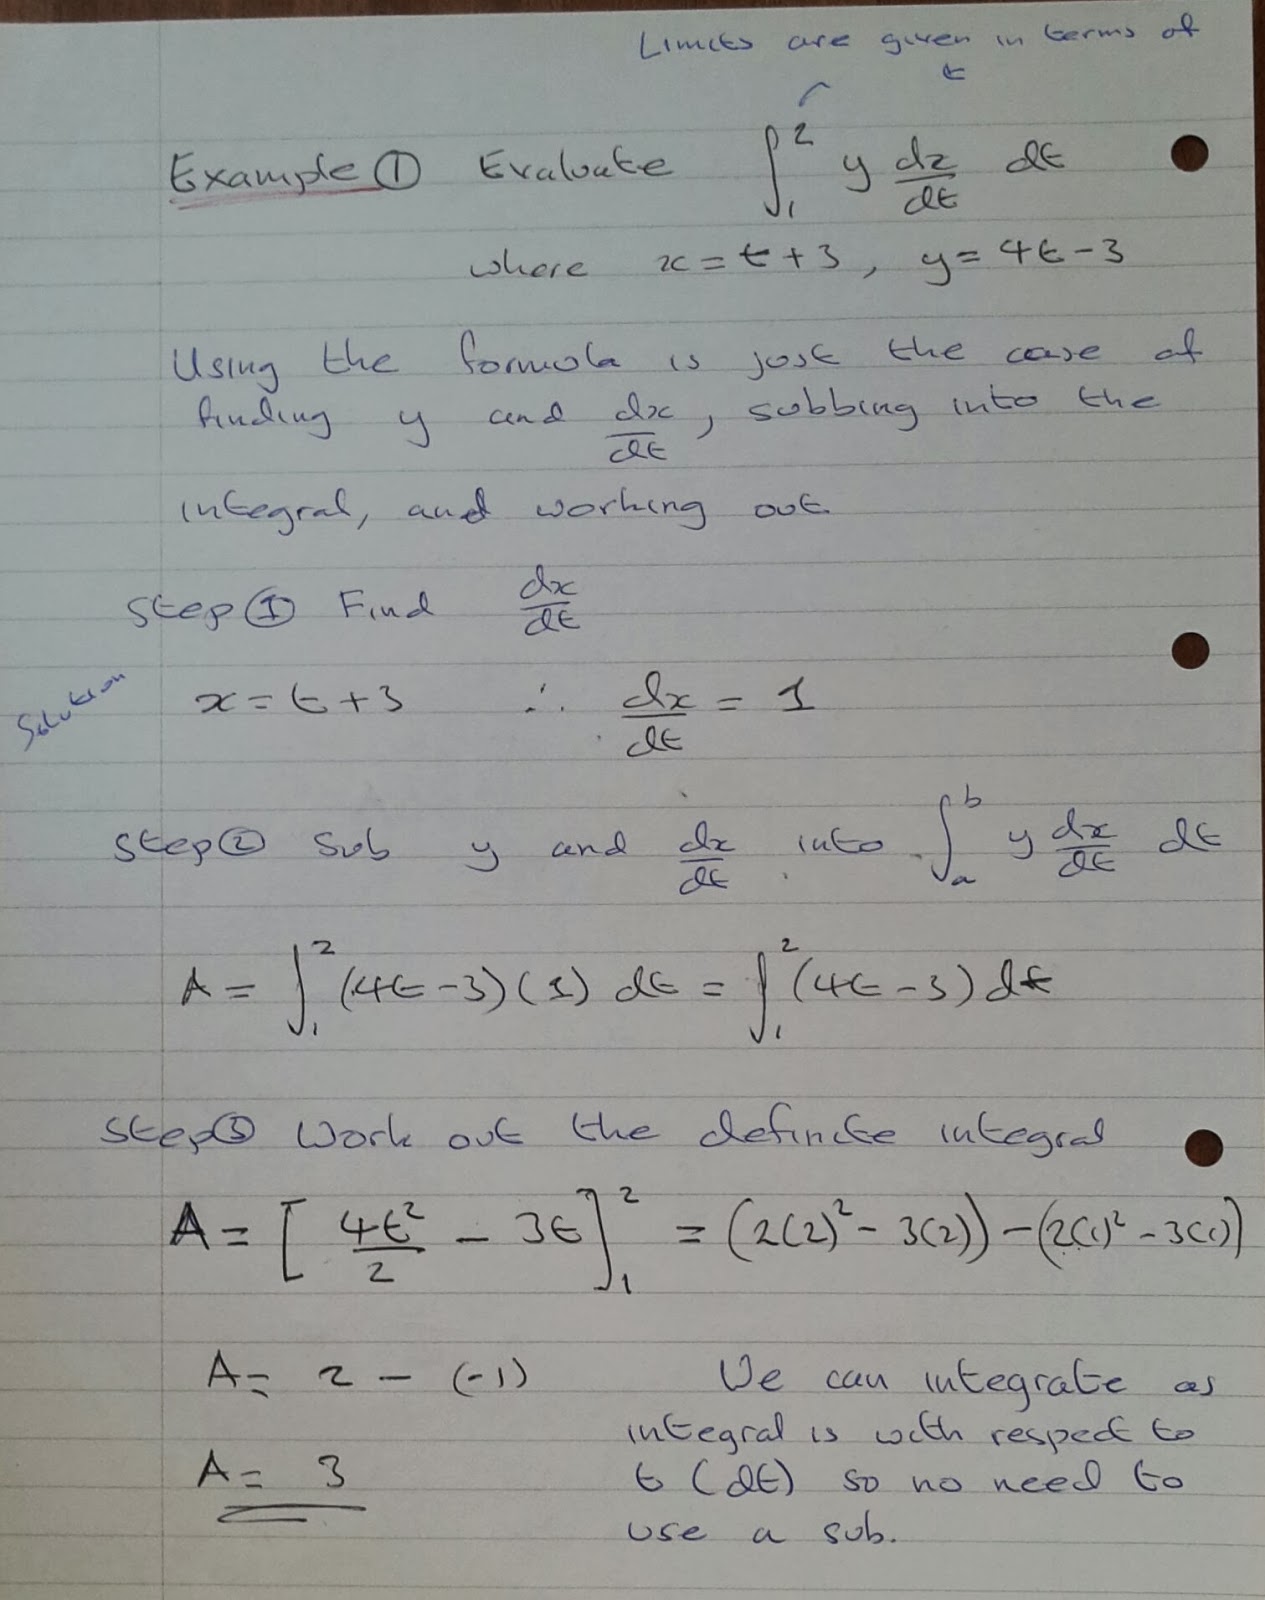 Limits are given in terms of
t
Example ① Evaluate ∫₁² y dx/dt dt
where x = t + 3, y = 4t - 3
Using the formula is just the case of
finding y and dx/dt, subbing into the
integral, and working out
Step ① Find dx/dt
Solution
x = t + 3 ∴ dx/dt = 1
Step ② Sub y and dx/dt into ∫ₐᵇ y dx/dt dt
A = ∫₁² (4t - 3)(1) dt = ∫₁² (4t - 3) dt
Step ③ Work out the definite integral
A = [4t²/2 - 3t]₁² = (2(2)² - 3(2)) - (2(1)² - 3(1))
A = 2 - (-1)
A = 3
We can integrate as
integral is with respect to
t (dt) so no need to
use a sub.